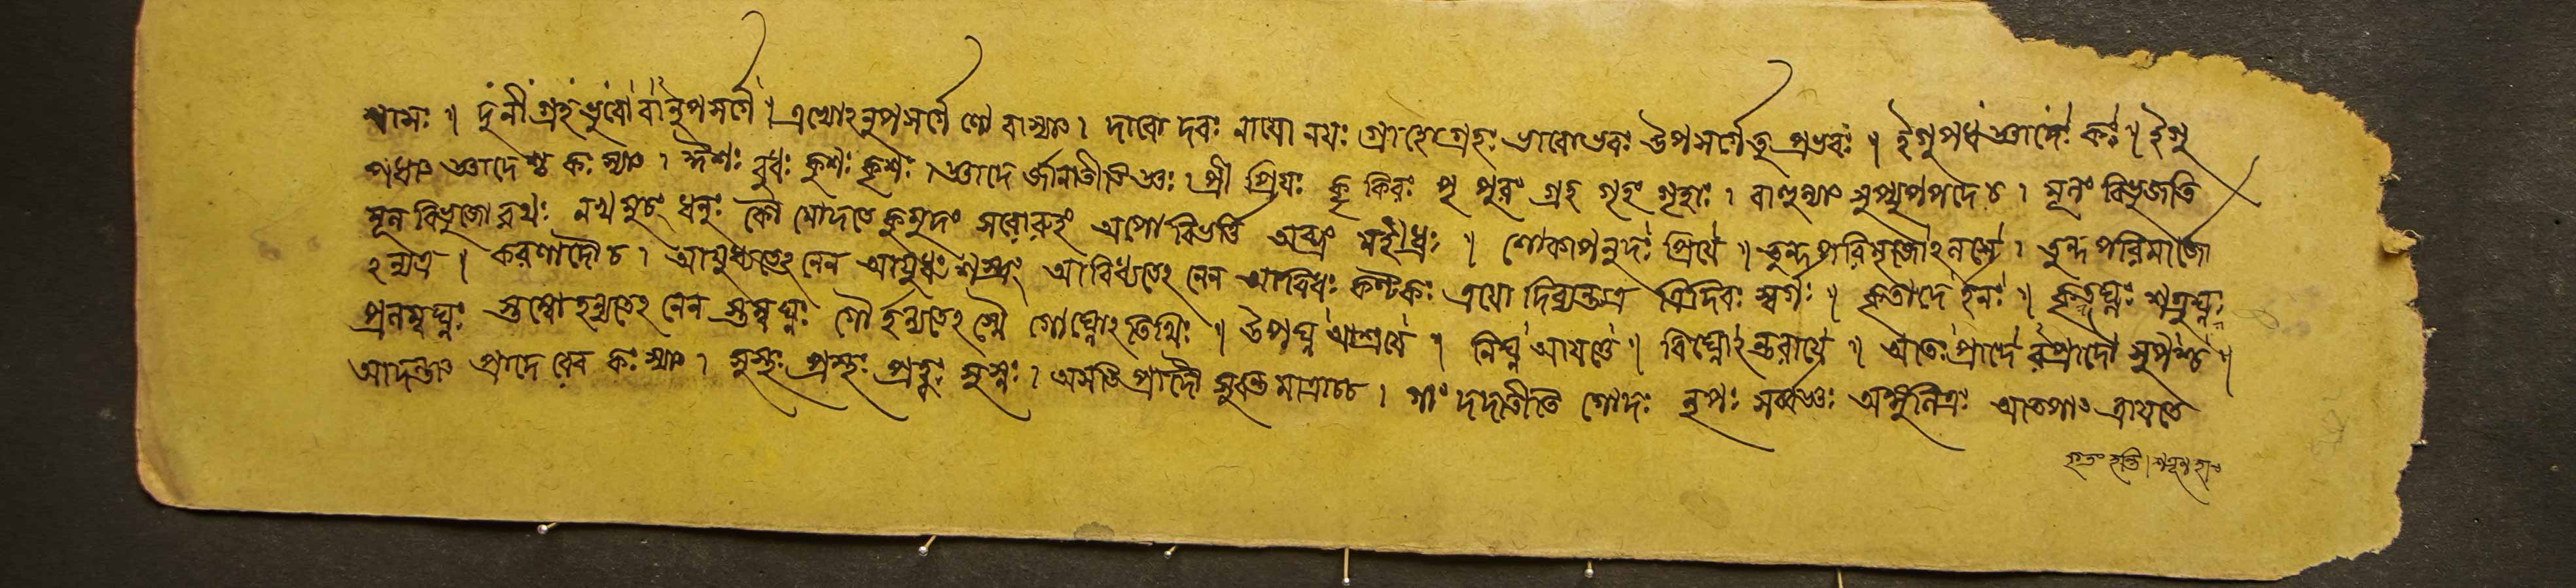 শ্বাসঃ ॥ দুনীগ্রহভুবো বানুপসর্গে । এভ্যোঽনুপসর্গে ণো বা স্যাৎ । দাবো দবঃ নায়ো নয়ঃ গ্রাহো গ্রহঃ ভাবো ভবঃ উপসর্গে তু প্রভবঃ ॥ ইগুপধজ্ঞাদেঃ কঃ ॥ ইগু
পধাৎ জ্ঞাদেশ্চ কঃ স্যাৎ । ঈশঃ বুধঃ কুশঃ কৃশঃ । জ্ঞাদে র্জানাতীতি জ্ঞঃ । প্রী প্রিয়ঃ কৄ কিরঃ পৄ পুরঃ গ্রহ গৃহং গৃহাঃ । বাহুল্যাৎ সুপ্যুপপদে চ । মূলং বিভুজতি
মূলবিভুজো রথঃ নখমুচং ধনুঃ কৌ মোদতে কুমুদং সরোরুহং অপো বিভর্ত্তি অব্ভ্রং মহীধ্রঃ ॥ শোকাপনুদঃ প্রিয়ে ॥ তুন্দপরিমৃজোঽলসে । তুন্দপরিমার্জো
ঽন্যত্র । করণাদৌ চ । আয়ুধ্যতেঽনেন আয়ুধং শস্ত্রং আবিধ্যতেঽনেন আবিধঃ কণ্টকঃ এয়ো দিব্যন্ত্যত্র ত্রিদিবঃ স্বর্গঃ ॥ কৃতাদে র্হনঃ ॥ কৃতঘ্নঃ শত্রুঘ্নঃ
প্রলম্বঘ্নঃ স্তম্বো হন্যতেঽনেন স্তম্বঘ্নঃ গৌ র্হন্যতেঽস্মৈ গোঘ্নোঽতিথিঃ ॥ উপঘ্ন আশ্রয়ে ॥ নিঘ্ন আয়ত্তে ॥ বিঘ্নোঽন্তরায়ে ॥ আতঃ প্রাদে রপ্রাদৌ সুপশ্চ ॥
আদন্তাৎ প্রাদে রেব কঃ স্যাৎ । সুস্থঃ প্রস্থঃ প্রহ্বঃ সুগ্লঃ । অসতি প্রাদৌ সুবন্তমাত্রাচ্চ । গাং দদাতীতি গোদঃ নৃপঃ সর্ব্বজ্ঞঃ অঙ্গুলিত্রঃ আতপাৎ ত্রায়তে
কৃতং হন্তি । শত্রূন্